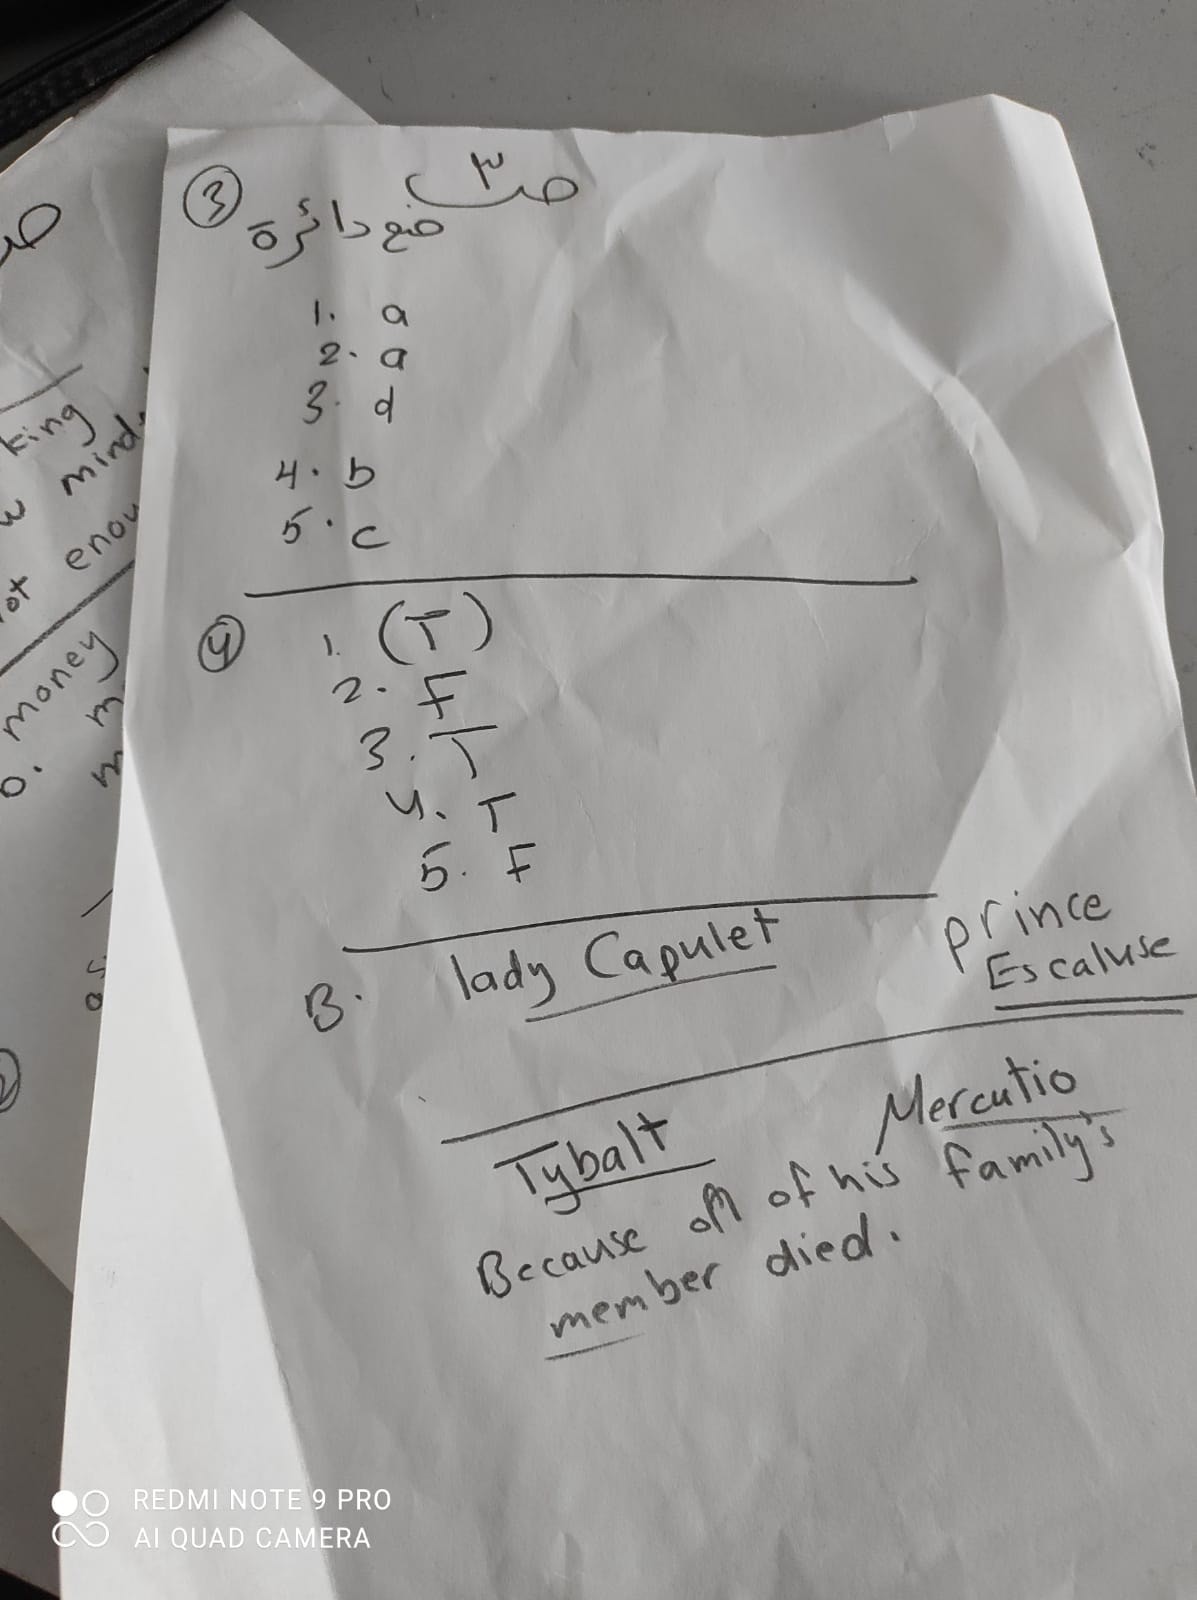 ص ٣
③ ضع دائرة
1. a
2. a
3. d
4. b
5. c
④ 1. (T)
2. F
3. T
4. T
5. F
B. lady Capulet prince
Escaluse
Tybalt Mercutio
Because of his family's
member died.
ص
king
mind
enou
money
REDMI NOTE 9 PRO
AI QUAD CAMERA